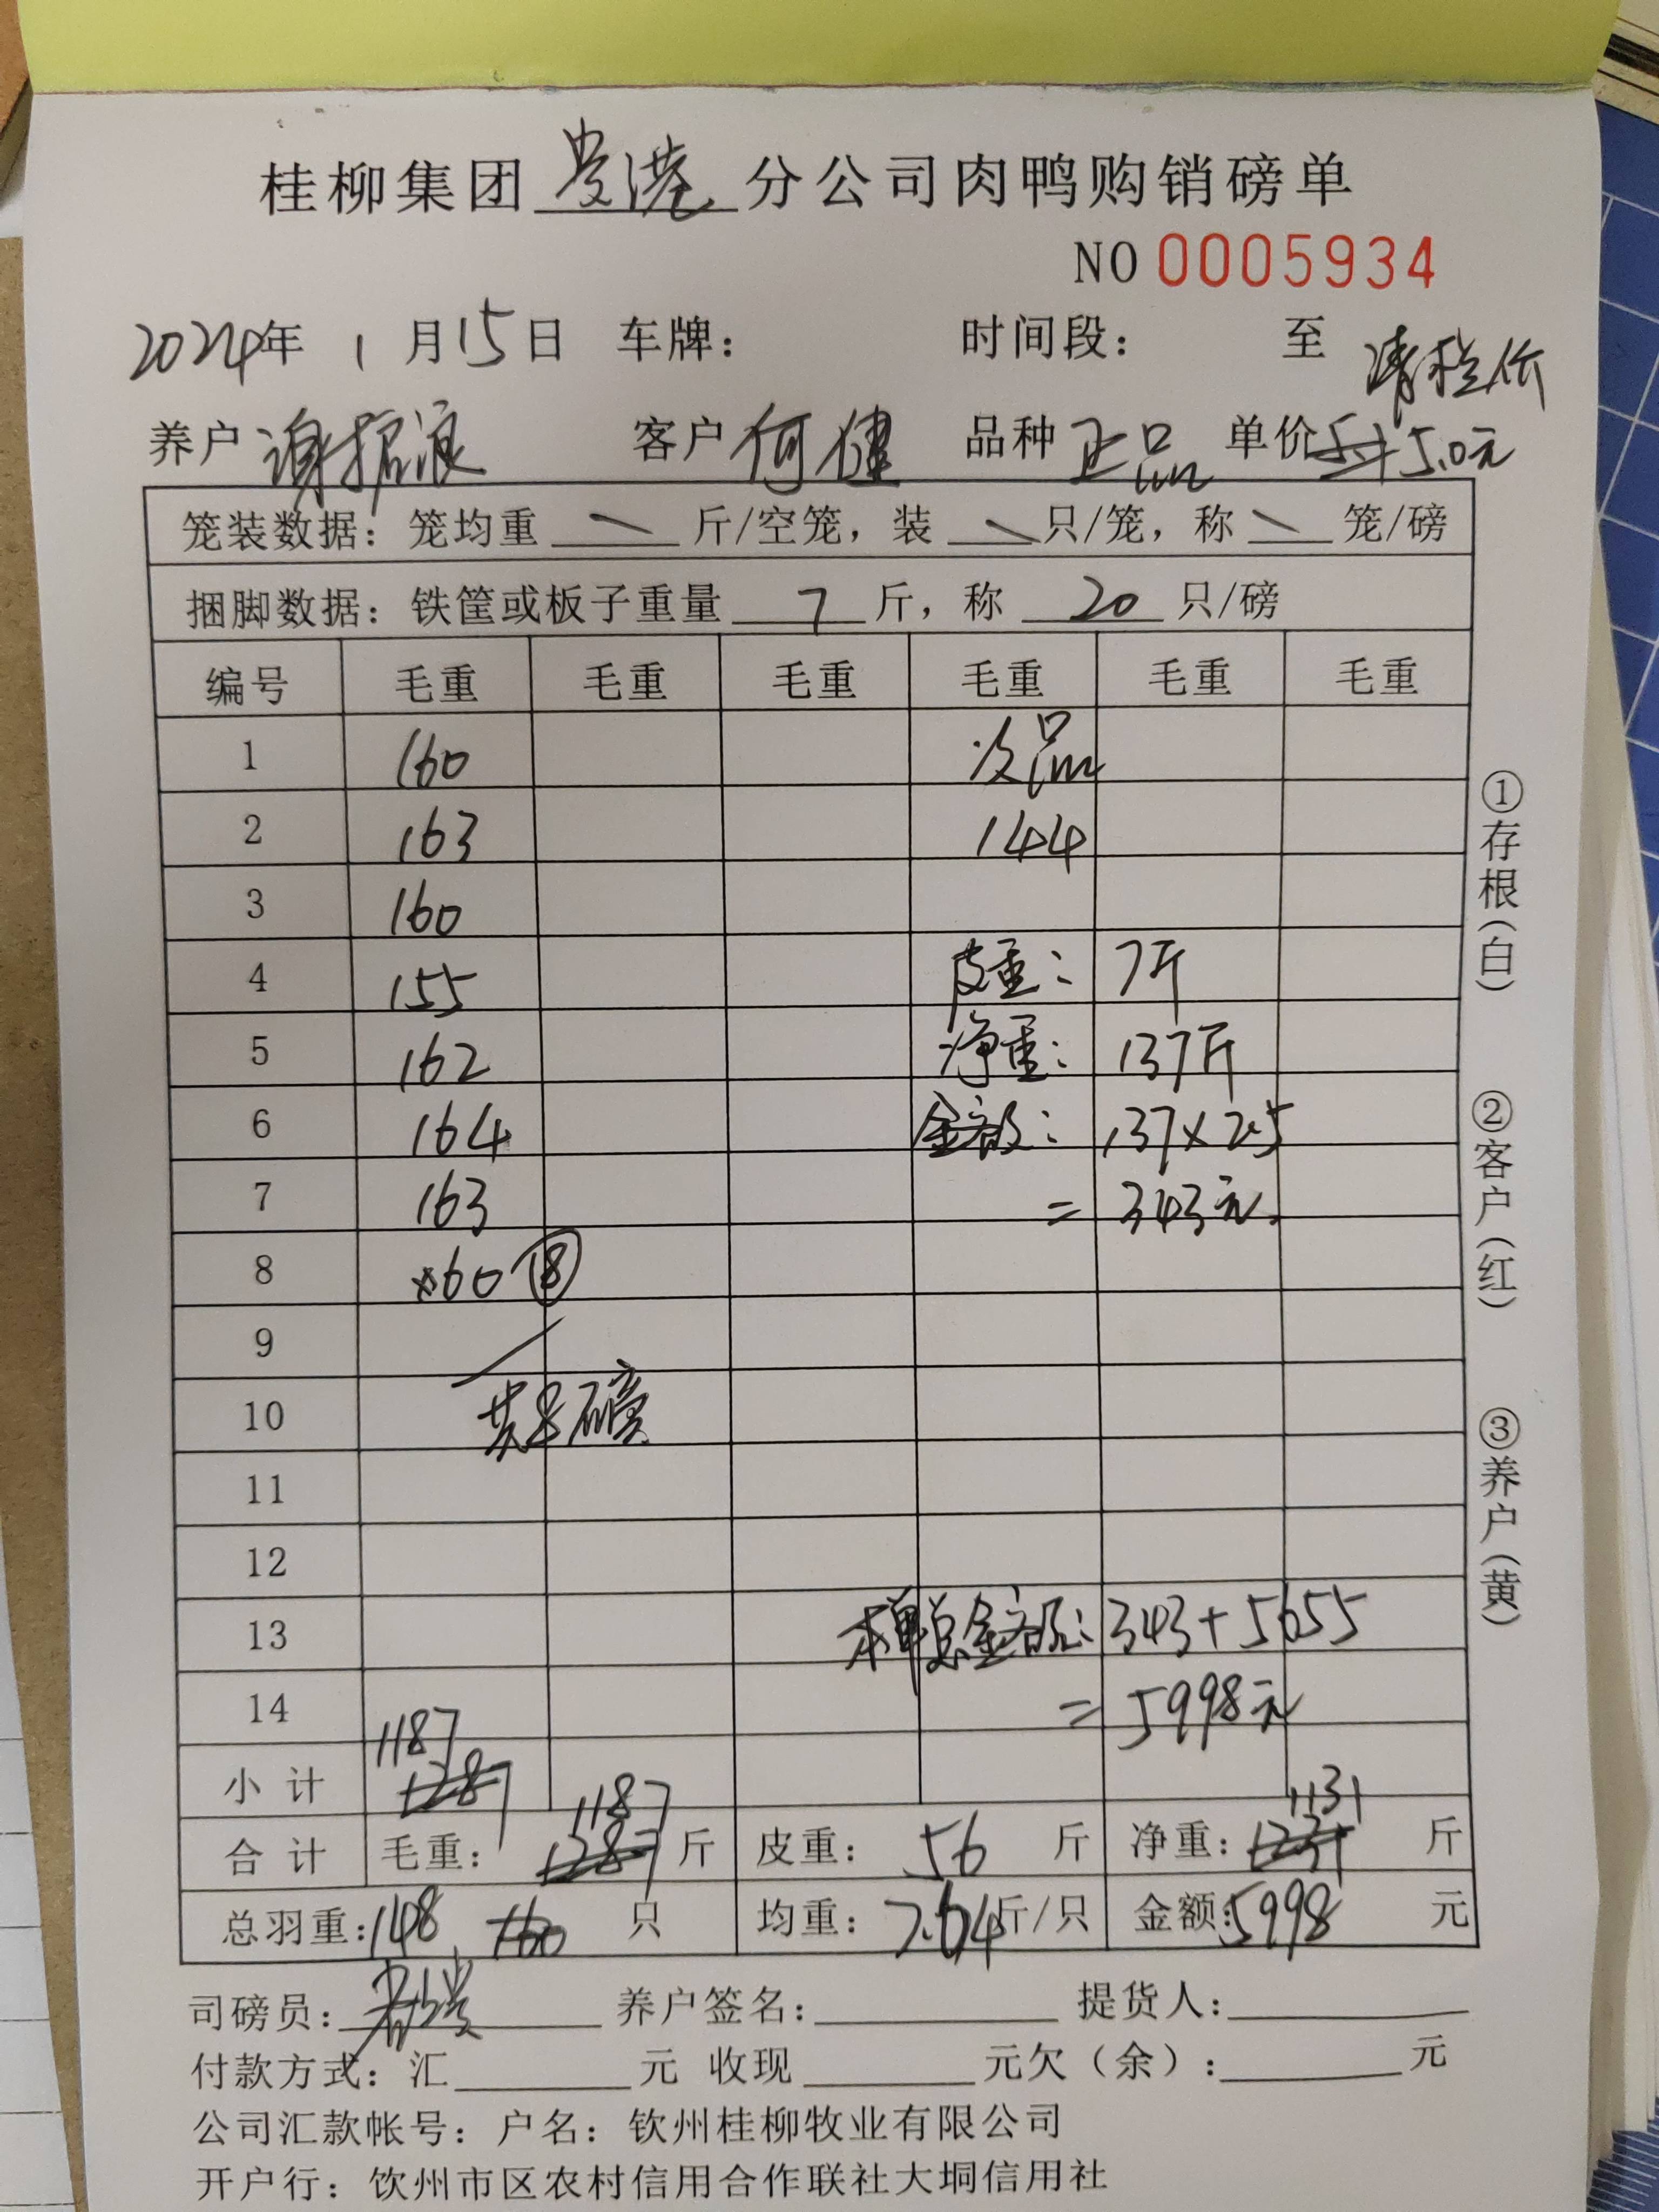 桂柳集团 贵港 分公司肉鸭购销磅单
NO 0005934
2024年 1 月 15 日 车牌： 时间段： 至 清栏价
养户 谢招浪 客户 何健 品种 正品 单价 5.0元
笼装数据：笼均重 \ 斤/空笼，装 \ 只/笼，称 \ 笼/磅
捆脚数据：铁筐或板子重量 7 斤，称 20 只/磅
编号 毛重 毛重 毛重 毛重 毛重 毛重
1 160 次品
2 163 144
3 160
4 155 皮重： 7斤
5 162 净重： 137斤
6 164 金额： 137×2.5
7 163 = 343元.
8 60 ⑱
9
10 共8磅
11
12
13 本单总金额： 343+5655
14 = 5998元
小 计 1187 1287
合 计 毛重： 1187 1287 斤 皮重： 56 斤 净重： 1131 1231 斤
总羽重： 148 160 只 均重： 7.64 斤/只 金额： 5998 元
司磅员： 养户签名： 提货人：
付款方式：汇 元 收现 元欠（余）： 元
公司汇款帐号：户名：钦州桂柳牧业有限公司
开户行：饮州市区农村信用合作联社大垌信用社
①存根（白）
②客户（红）
③养户（黄）